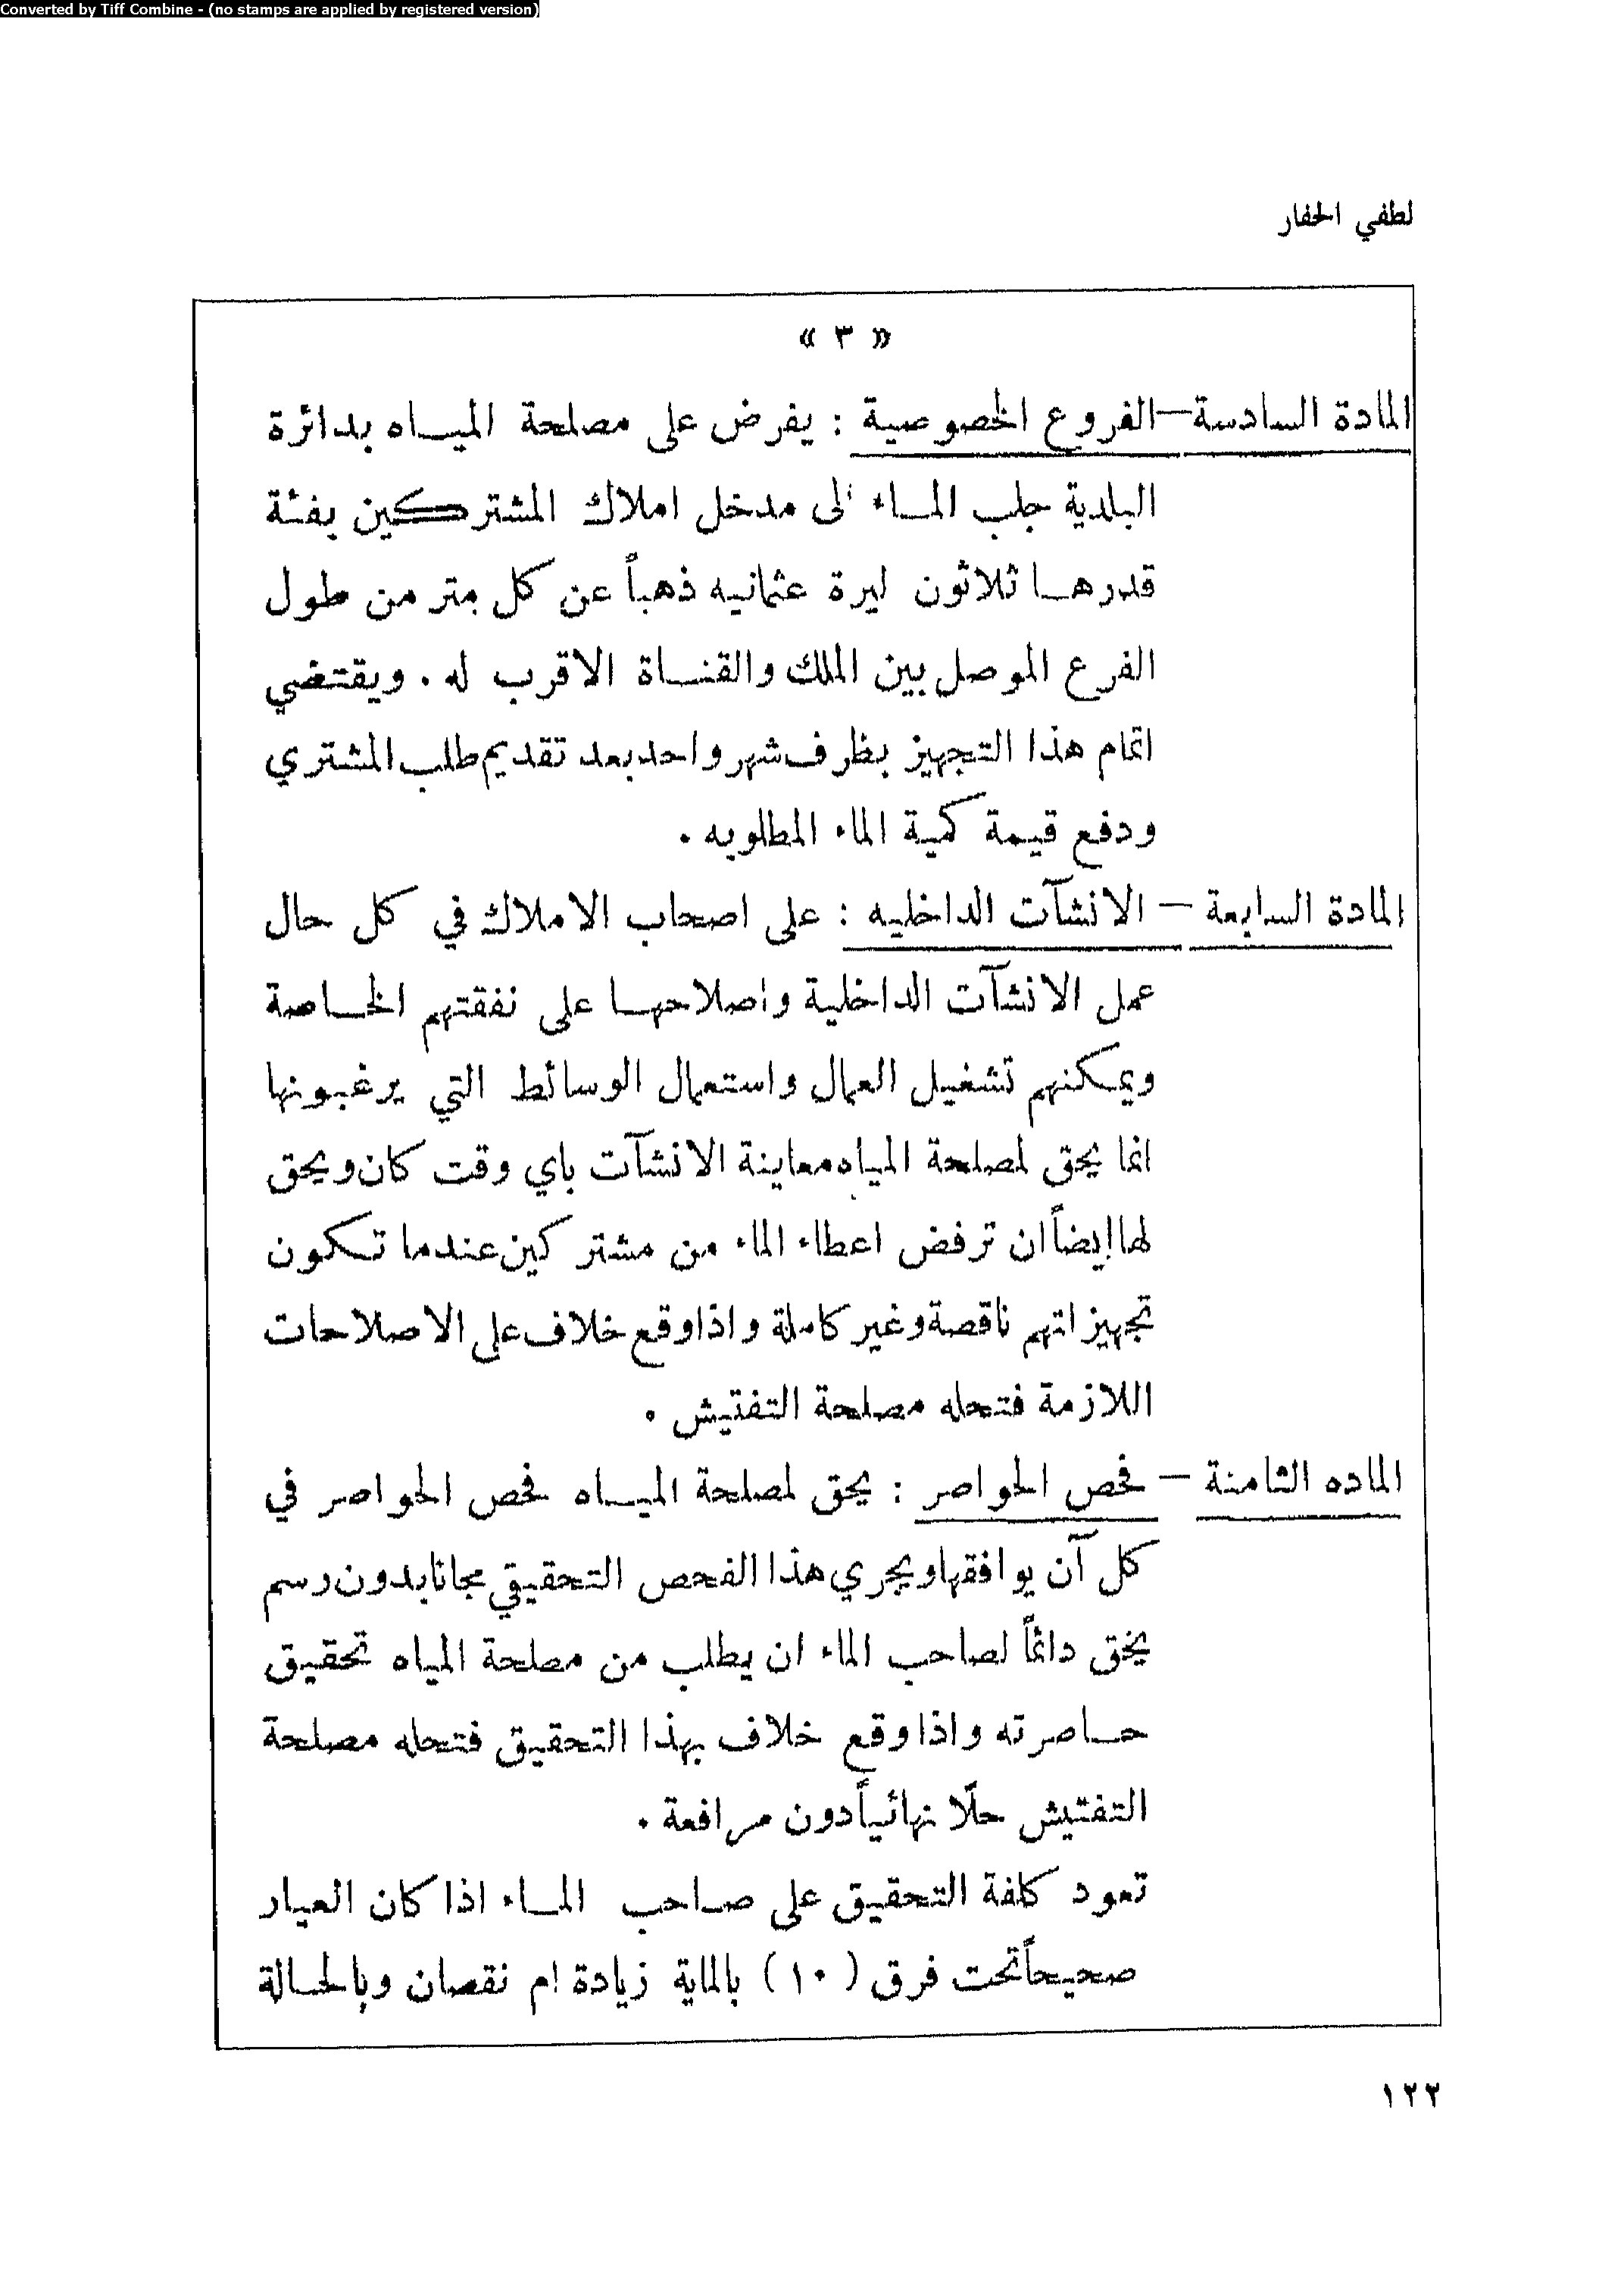 Converted by Tiff Combine - (no stamps are applied by registered version)
لطفي الحفار
« ٣ »
المادة السادسة — الفروع الخصوصية : يفرض على مصلحة المياه بدائرة
البلدية جلب الماء الى مدخل املاك المشتركين بفئة
قدرها ثلاثون ليرة عثمانيه ذهباً عن كل متر من طول
الفرع الموصل بين الملك والقناة الاقرب له . ويقتضي
اتمام هذا التجهيز بظرف شهر واحد بعد تقديم طلب المشتري
ودفع قيمة كمية الماء المطلوبه .
المادة السابعة — الانشآت الداخليه : على اصحاب الاملاك في كل حال
عمل الانشآت الداخلية واصلاحها على نفقتهم الخاصة
ويمكنهم تشغيل العمال واستعمال الوسائط التي يرغبونها
انما يحق لمصلحة المياه معاينة الانشآت باي وقت كان ويحق
لها ايضاً ان ترفض اعطاء الماء من مشتركين عندما تكون
تجهيزاتهم ناقصة وغير كاملة واذا وقع خلاف على الاصلاحات
اللازمة فتحله مصلحة التفتيش .
الماده الثامنة — فحص الحواصر : يحق لمصلحة المياه فحص الحواصر في
كل آن يوافقها ويجري هذا الفحص التحقيقي مجانا بدون رسم
يخق دائماً لصاحب الماء ان يطلب من مصلحة المياه تحقيق
حاصرته واذا وقع خلاف بهذا التحقيق فتحله مصلحة
التفتيش حلًا نهائياً دون مرافعة .
تعود كلفة التحقيق على صاحب الماء اذا كان العيار
صحيحاً تحت فرق ( ١٠ ) بالماية زيادة ام نقصان وبالحالة
١٢٢